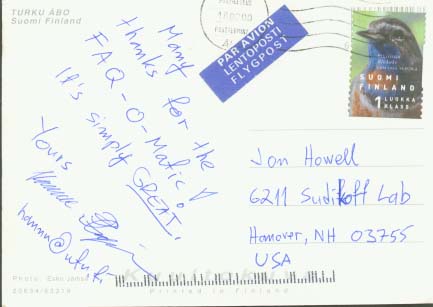 TURKU ÅBO
Suomi Finland
Many
thanks for the
FAQ-O-Matic!
It's simply
GREAT.
Yours
hannu@utu.fi
PAR AVION
LENTOPOSTI
FLYGPOST
SUOMI
FINLAND
1 LUOKKA
KLASS
Jon Howell
6211 Sudikoff Lab
Hanover, NH 03755
USA
Photo: Esko Jämsä
Printed in Finland